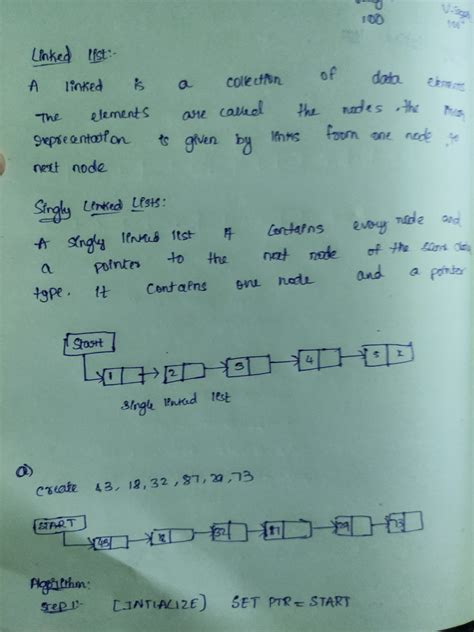 100
Linked list:-
A linked is a collection of data elements
The elements are called the nodes, the
representation is given by links from one node to
next node
Singly Linked Lists:
A singly linked list it contains every node and
a pointer to the next node of the same data
type. It contains one node and a pointer
Start
1 2 3 4 5 X
Single linked list
a)
Create 43, 18, 32, 87, 29, 73
START
43 18 32 87 29 73
Algorithm:
Step 1:- [INTIALIZE] SET PTR = START